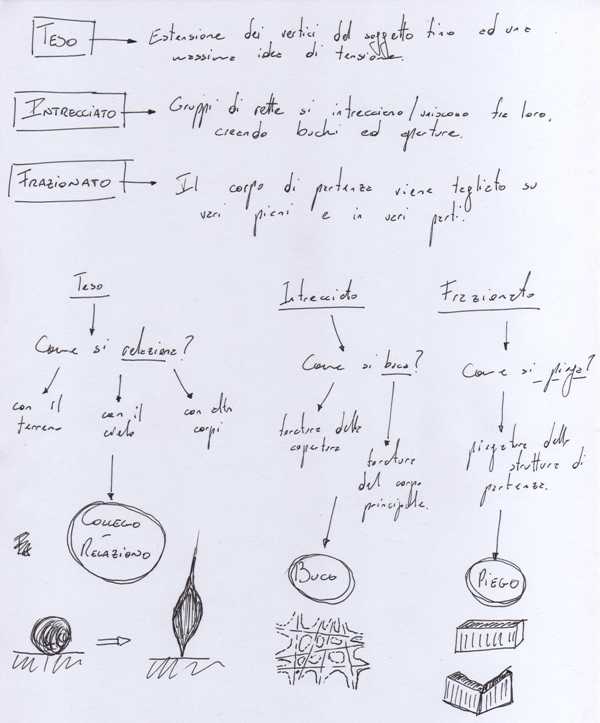 TESO → Estensione dei vertici del soggetto fino ad una
massima idea di tensione.
INTRECCIATO → Gruppi di rette si intrecciano/uniscono fra loro,
creando buchi ed aperture.
FRAZIONATO → Il corpo di partenza viene tagliato su
vari piani e in vari parti.
Teso
Come si relaziona?
con il
terreno
con il
cielo
con altri
corpi
COLLEGO
-
RELAZIONO
Intrecciato
Come si buca?
foratura della
copertura
foratura
del corpo
principale.
BUCO
Frazionato
Come si piega?
piegatura della
struttura di
partenza.
PIEGO